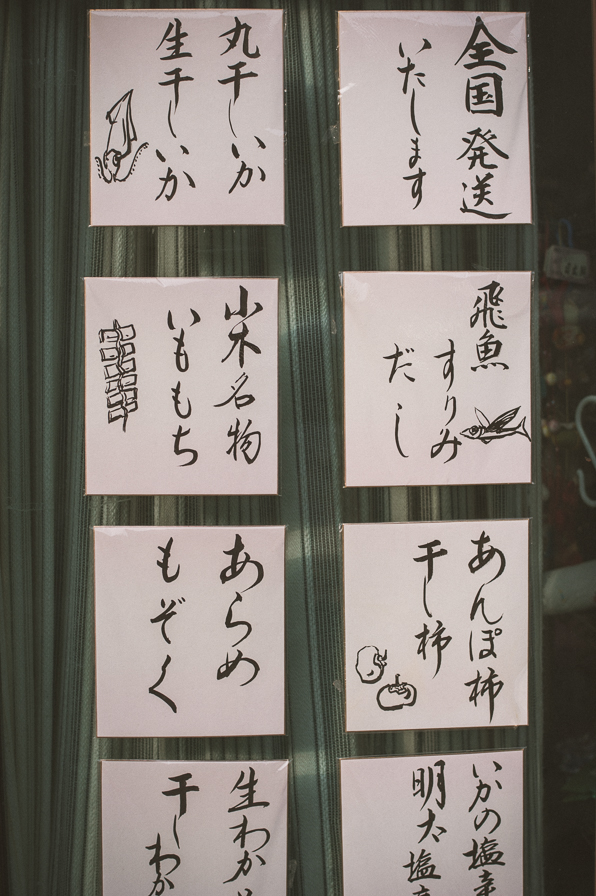 全国発送
いたします
丸干しいか
生干しいか
飛魚
すりみ
だし
小木名物
いももち
あんぽ柿
干し柿
あらめ
もぞく
いかの塩辛
明太塩
生わか
干しわか